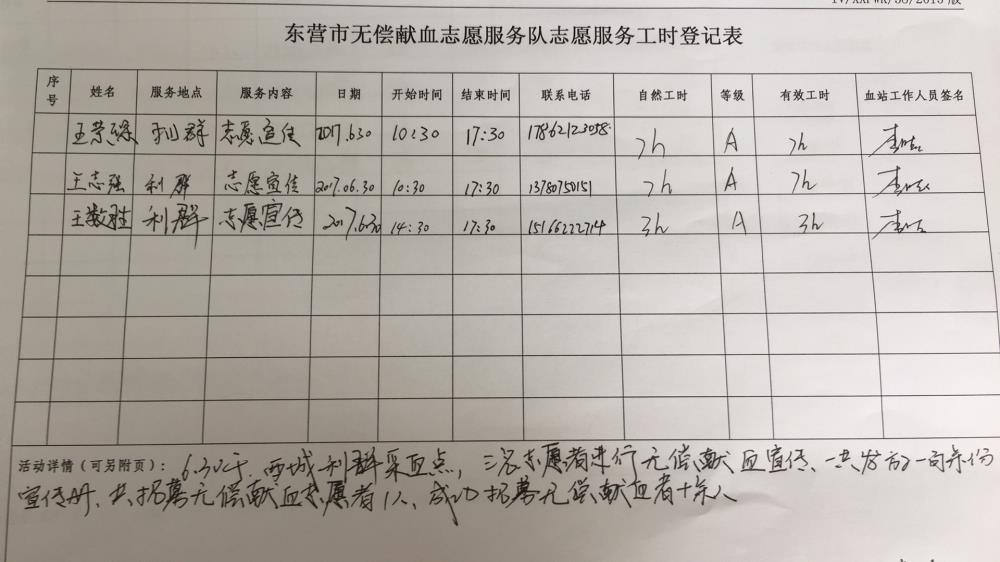 东营市无偿献血志愿服务队志愿服务工时登记表
序号 姓名 服务地点 服务内容 日期 开始时间 结束时间 联系电话 自然工时 等级 有效工时 血站工作人员签名
利群 志愿宣传 2017.6.30 10:30 17:30 17862123058 7h A 7h
王志强 利群 志愿宣传 2017.06.30 10:30 17:30 13780750151 7h A 7h
王数胜 利群 志愿宣传 2017.6.30 14:30 17:30 15166222714 3h A 3h
活动详情（可另附页）： 6.30下午，西城利群采血点，三名志愿者进行无偿献血宣传、一共发放一百余份
宣传册、共招募无偿献血志愿者1人、成功招募无偿献血者十余人